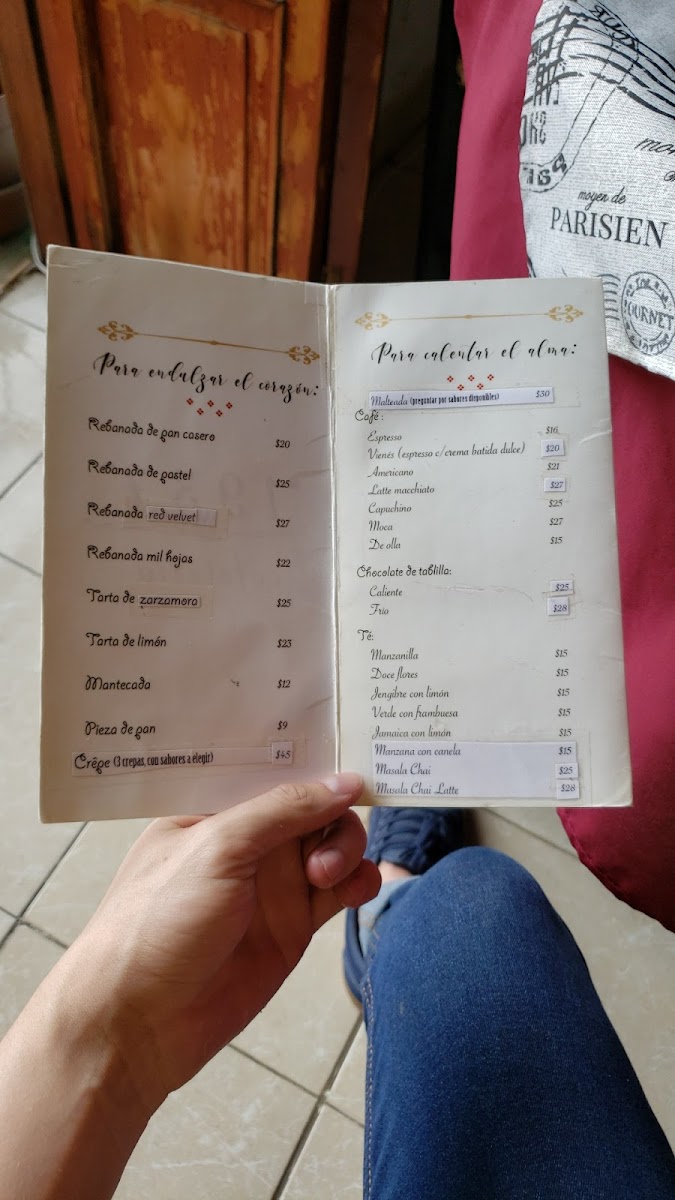 Para endulzar el corazón:
Rebanada de pan casero $20
Rebanada de pastel $25
Rebanada red velvet $27
Rebanada mil hojas $22
Tarta de zarzamora $25
Tarta de limón $23
Mantecada $12
Pieza de pan $9
Crêpe (3 crepas, con sabores a elegir) $45
Para calentar el alma:
Malteada (preguntar por sabores disponibles) $30
Café:
Espresso $16
Vienés (espresso c/crema batida dulce) $20
Americano $21
Latte macchiato $27
Capuchino $25
Moca $27
De olla $15
Chocolate de tablilla:
Caliente $25
Frío $28
Té:
Manzanilla $15
Doce flores $15
Jengibre con limón $15
Verde con frambuesa $15
Jamaica con limón $15
Manzana con canela $15
Masala Chai $25
Masala Chai Latte $28
moyen de
PARISIEN